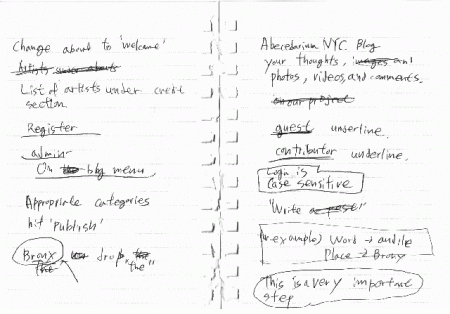 Change about to 'welcome'
Artists under abouts
List of artists under credit
section
Register
admin
On blog menu,
Appropriate categories
hit 'Publish'
Bronx drop "the"
the
Abecedarium NYC Blog
your thoughts, images and
photos, videos, and comments.
on our project
guest underline.
contributor underline.
Login is
case sensitive
"Write a post"
example) Word → audile
Place → Bronx
This is a very important
step